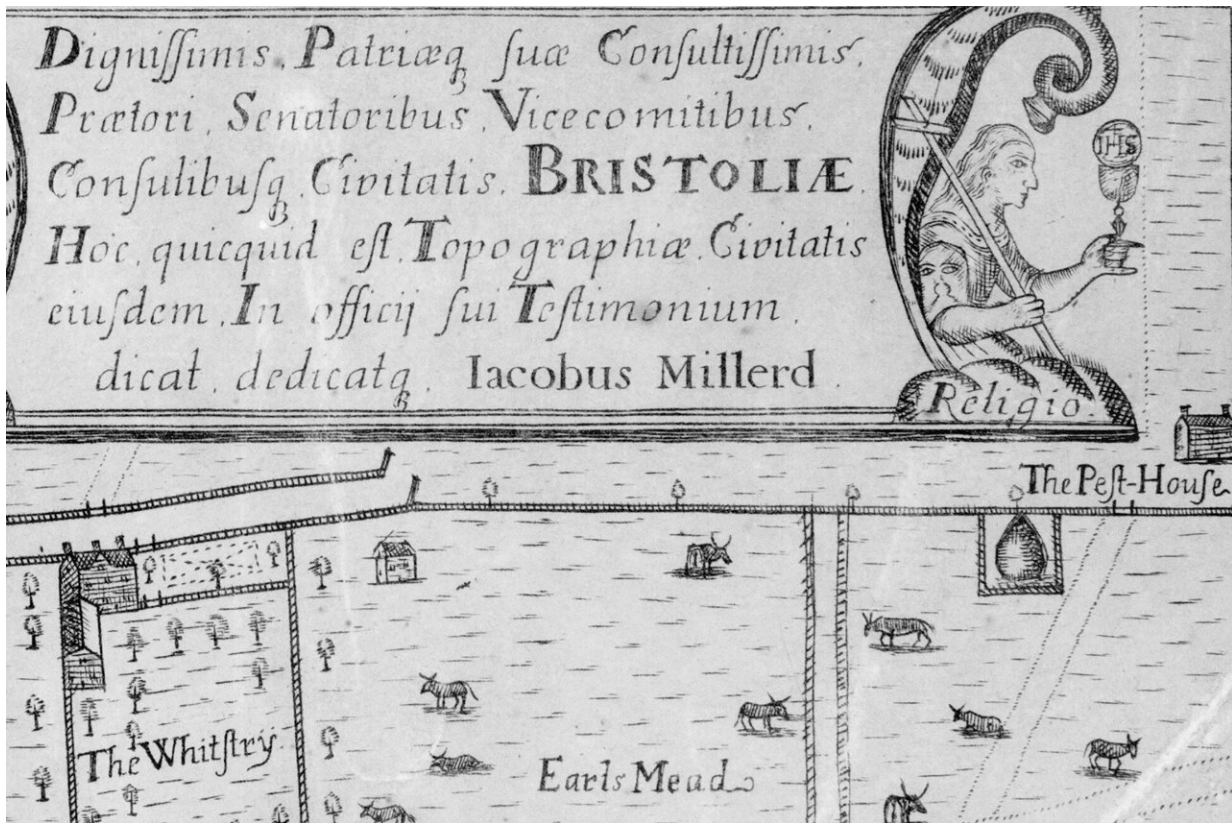 Digniſſimis, Patriæq ſuæ Conſultiſſimis,
Prætori, Senatoribus, Vicecomitibus,
Conſulibuſq, Civitatis, BRISTOLIÆ,
Hoc, quicquid eſt, Topographiæ, Civitatis
eiuſdem, In officij ſui Teſtimonium,
dicat, dedicatq, Iacobus Millerd.
IHS
Religio.
The Peſt-Houſe
The Whitſtry
Earls Mead